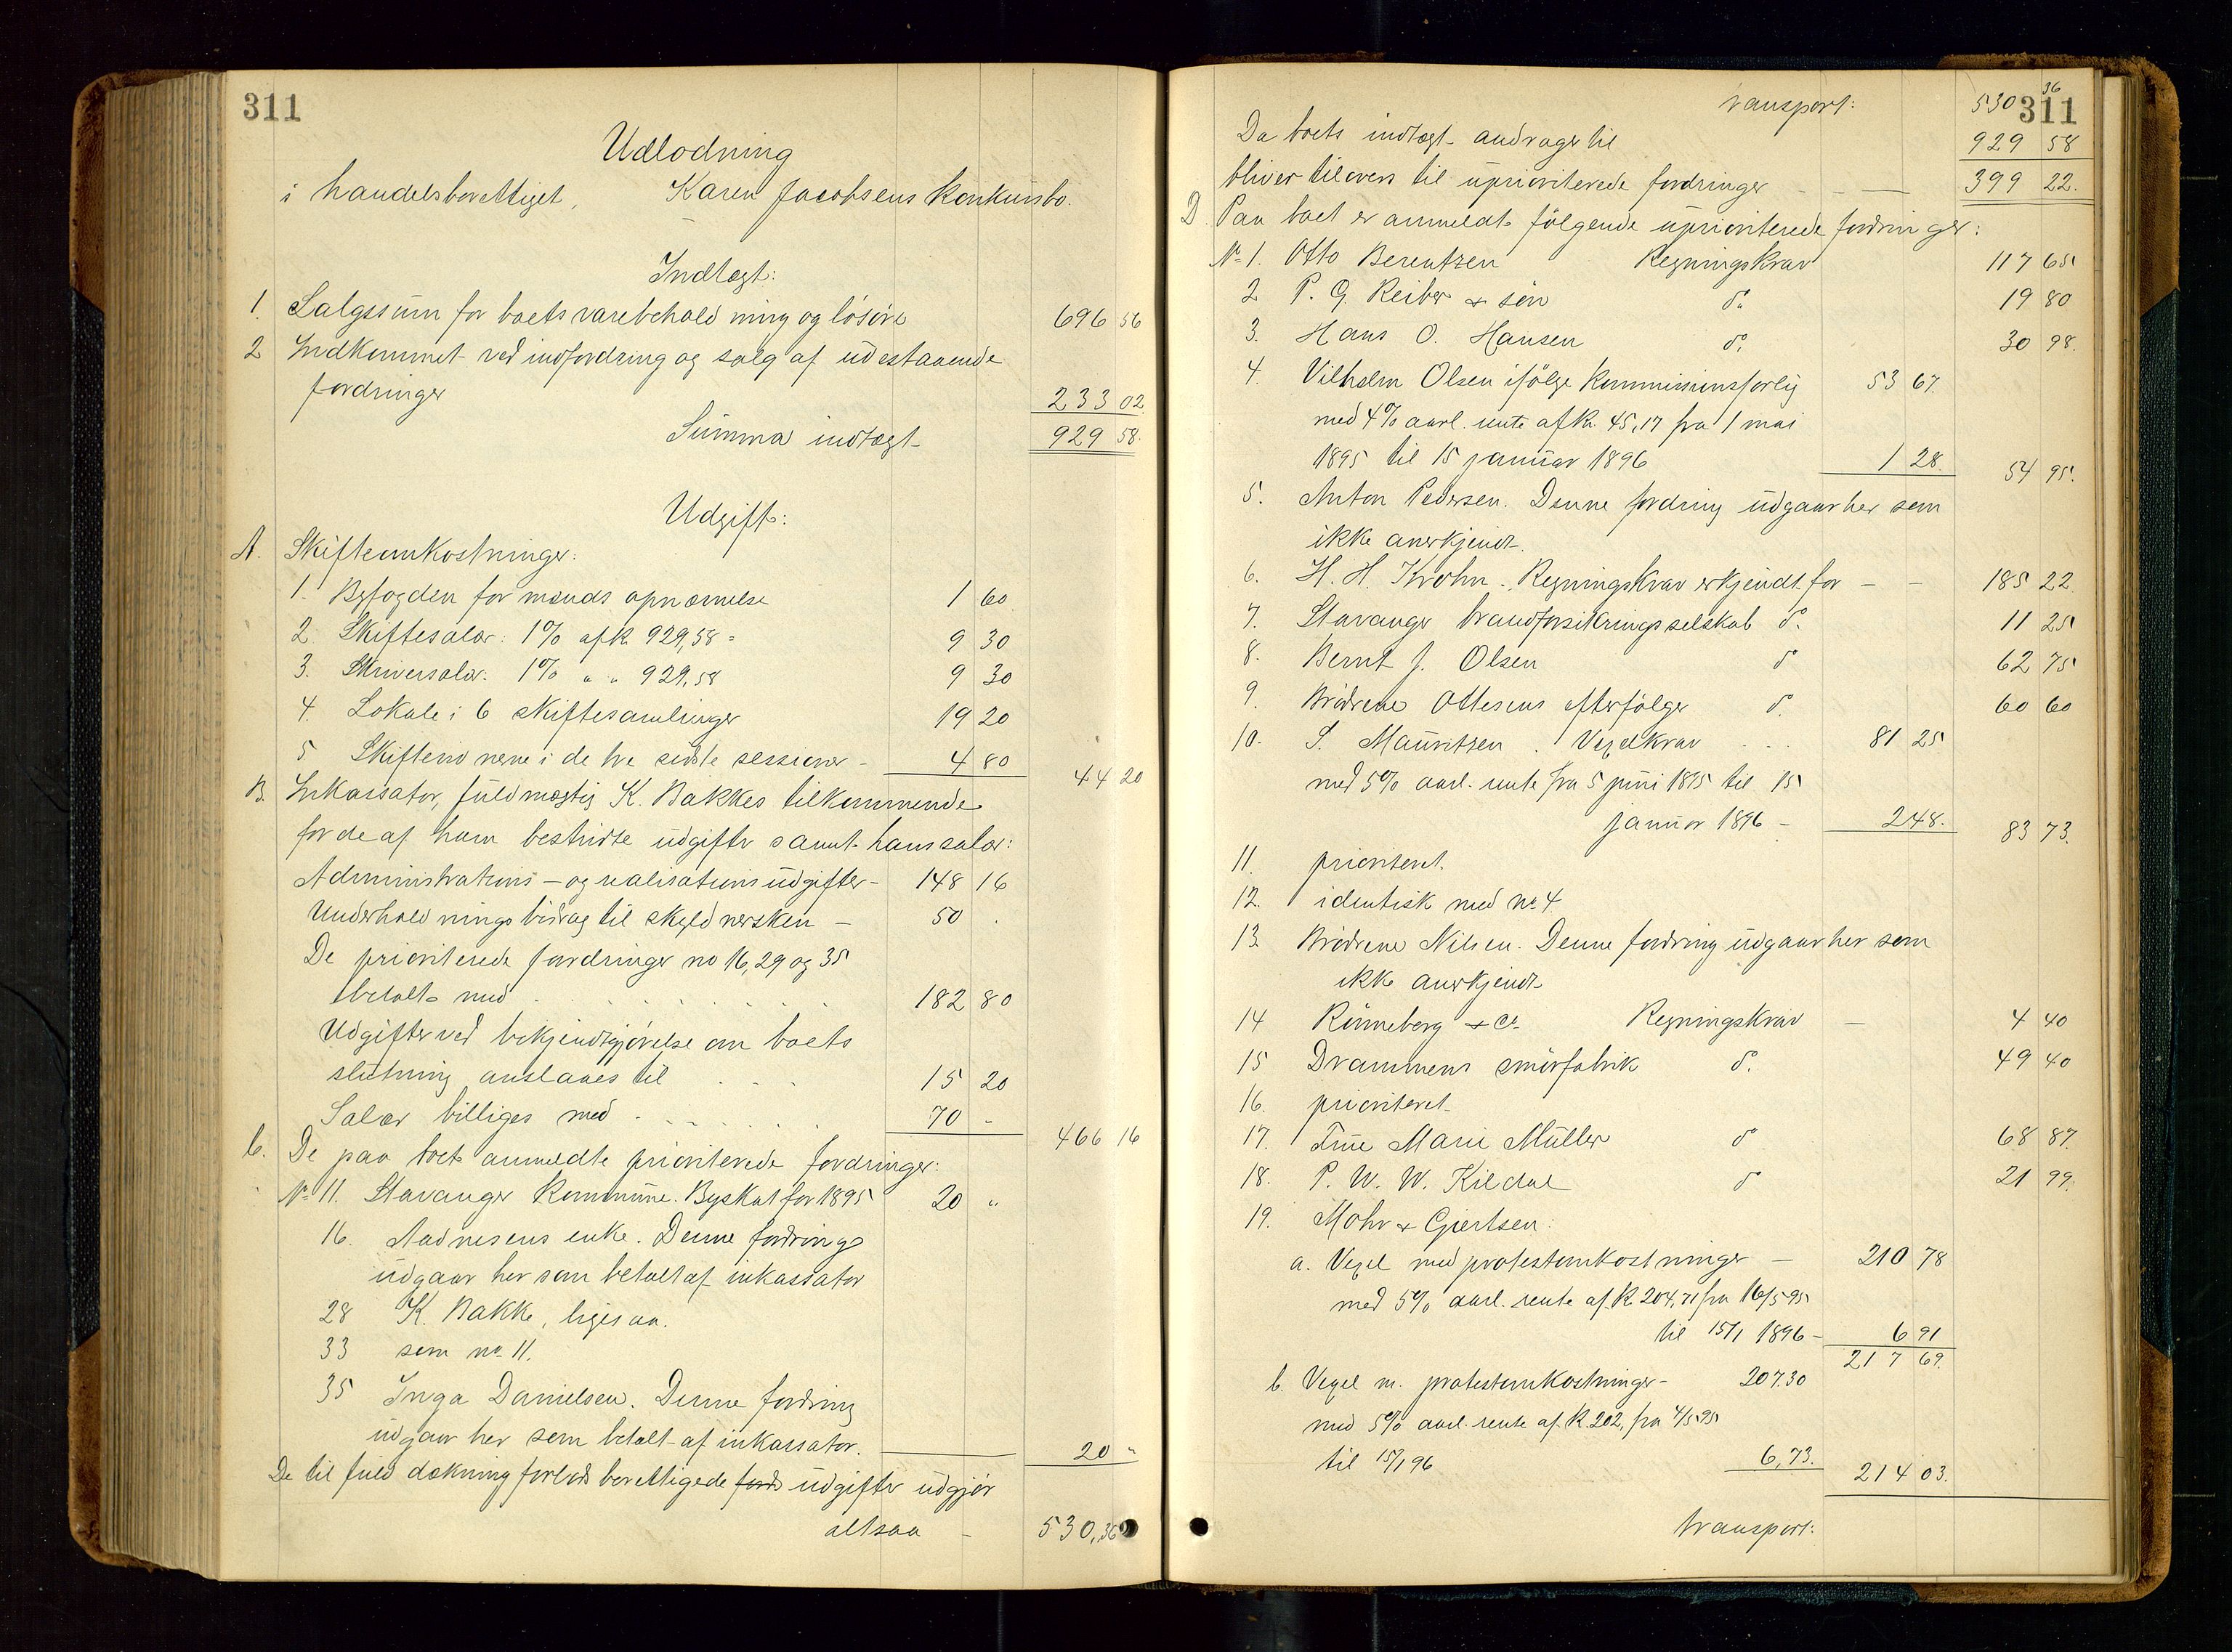 311
Udlodning
i handelsberettiget, Karen Jacobsens konkursbo.
Indtægt:
1. Salgssum for boets varebeholdning og løsøre 696 56
2 Indkommet ved indfordring og salg af udestaaende
fordringer 233 02.
Summa indtægt 929 58.
Udgift:
A. Skifteomkostninger:
1. Byfogden for mænds opnævnelse 1 60
2. Skiftesalær: 1% af k. 929,58 = 9 30
3. Skriversalær: 1% " " 929,58 9 30
4. Lokale i 6 skiftesamlinger 19 20
5 Skiftevidnerne i de tre sidste sessioner - 4 80 44 20
B. Inkassator, fuldmægtig K. Bakkes tilkommende
for de af ham bestridte udgifter samt hans salær:
Administrations- og realisationsudgifter - 148 16
Underholdningsbidrag til skyldnersken - 50 .
De prioriterede fordringer no 16, 29 og 35
betalt med . . . . . . . 182 80
Udgifter ved bekjendtgjørelse om boets
slutning anslaaes til . . . 15 20
Salær billiges med . . . . . . 70 - 466 16
C. De paa boet anmeldte prioriterede fordringer:
No 11. Stavanger kommune. Byskat for 1895 20 "
16. Aadnesens enke. Denne fordring
udgaar her som betalt af inkassator
28 K. Bakke, ligesaa.
33 som no 11.
35 Inga Danielsen. Denne fordring
udgaar her som betalt af inkassator. 20 "
De til fuld dækning forlods berettigede udgifter udgjør
altsaa - 530,36
transport: 530 36
311
Da boets indtægt andrager til 929 58
bliver tilovers til uprioriterede fordringer - - — 399 22.
D. Paa boet er anmeldt følgende uprioriterede fordringer:
No 1. Otto Berentzen Regningskrav 117 65
2 P. G. Reiber & søn do 19 80
3. Hans O. Hansen do. 30 98.
4. Vilhelm Olsen ifølge kommissionsforlig 53 67.
med 4% aarl. rente af k. 45,17 fra 1 mai
1895 til 15 januar 1896 1 28. 54 95.
5. Anton Pedersen. Denne fordring udgaar her som
ikke anerkjendt.
6. H. H. Krohn. Regningskrav erkjendt for - - 185 22.
7. Stavanger brandforsikringsselskab do. 11 25
8. Bernt J. Olsen do 62 75
9. Brødrene Ottesens efterfølger do. 60 60
10. S. Mauritzen. Vexelkrav . . . 81 25
med 5% aarl. rente fra 5 juni 1895 til 15
januar 1896 - 2 48. 83 73.
11. prioriteret.
12. identisk med no 4.
13. Brødrene Nilsen. Denne fordring udgaar her som
ikke anerkjendt
14 Rönneberg & Co. Regningskrav — 4 40
15 Drammens smørfabrik do. 49 40
16. prioriteret.
17. Frue Marie Müller do 68 87.
18. P. W. W. Kildal do 21 99.
19. Mohr & Gjertsen:
a. Vexel med protestomkostninger — 210 78
med 5% aarl. rente af k. 204,71 fra 16/5 95
til 15/1 1896 - 6 91
217 69.
b. Vexel m. protestomkostninger - 207.30
med 5% aarl. rente af k. 202, fra 4/5 95
til 15/1 96 6,73. 214 03.
transport: